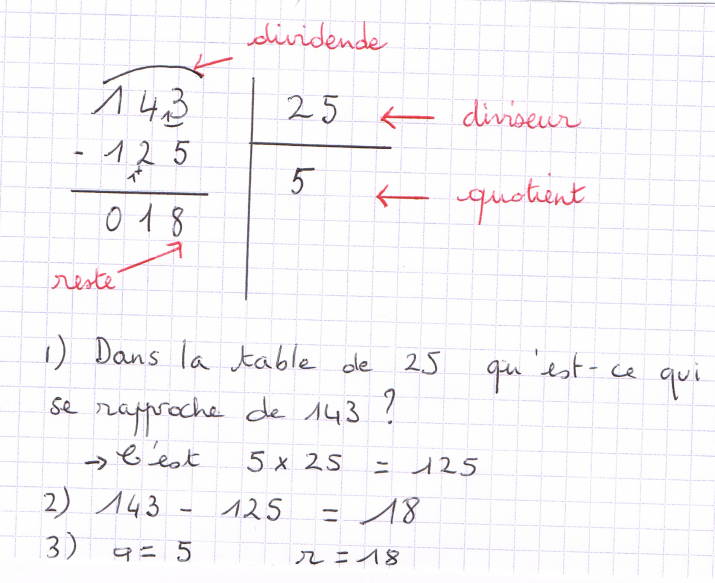 dividende
143 25 ← diviseur
1
- 125 5 ← quotient
1+
018
reste
1) Dans la table de 25 qu'est-ce qui
se rapproche de 143 ?
→ C'est 5 x 25 = 125
2) 143 - 125 = 18
3) q = 5 r = 18